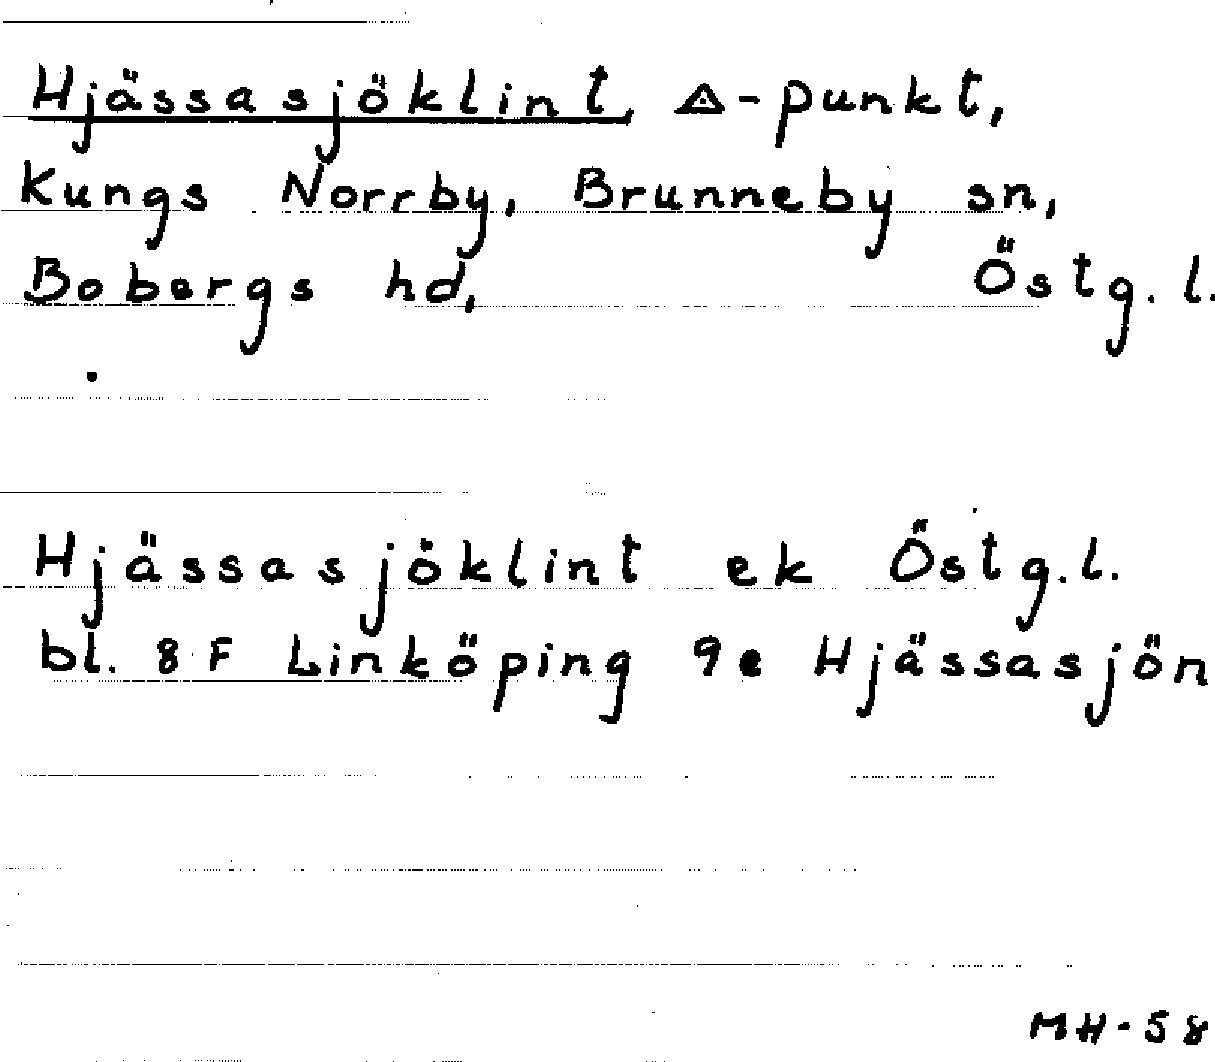 Hjässasjöklint, △-punkt,
Kungs Norrby, Brunneby sn,
Bobergs hd, Östg. l.
Hjässasjöklint ek Östg.l.
bl. 8 F Linköping 9e Hjässasjön
MH-58